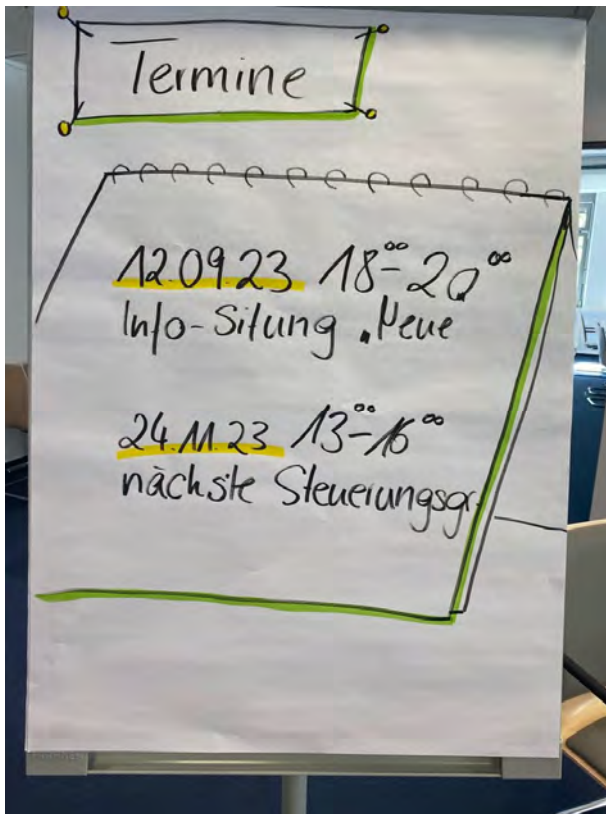 Termine
12.09.23 18⁰⁰-20⁰⁰
Info-Sitzung "Neue
24.11.23 13⁰⁰-16⁰⁰
nächste Steuerungsgr.